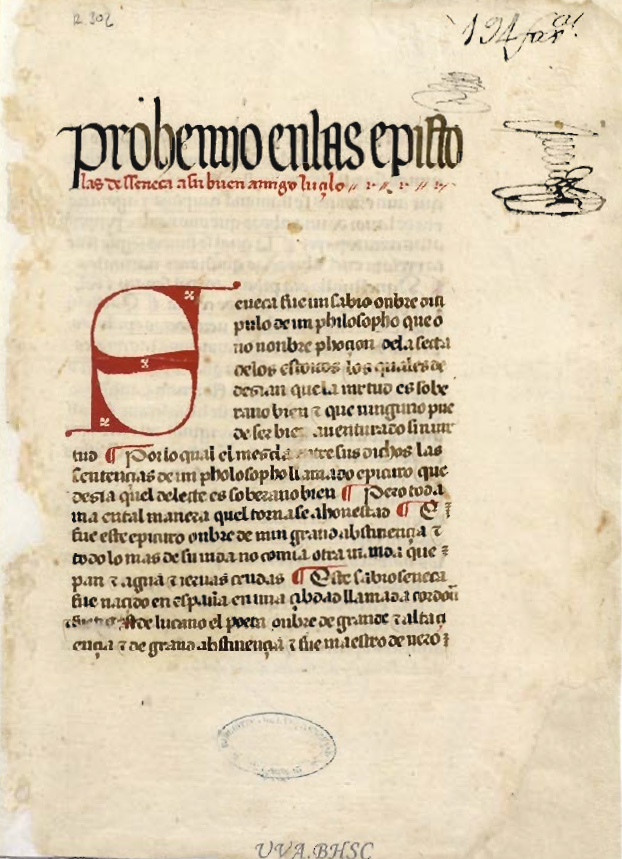 R 302
194 fax
prohemio enlas episto
las de sseneca a su buen amigo luçilo
Seneca fue un sabio onbre disci
pulo de un philosopho que o
uo nonbre phoçion dela secta
delos estoicos los quales de
desian que la uirtud es sobe
rano bien τ que ninguno pue
de ser bien auenturado sin uir
tud ¶ Por lo qual el mescla entre sus dichos las
sentençias de un pholosopho llamado epicuro que
desia quel deleite es soberano bien ¶ Pero toda
uia en tal manera quel torna se a honestad ¶ E
fue este epicuro onbre de muy grand abstinençia τ
todo lo mas de su uida no comia otra uianda que
pan τ agua τ ieruas crudas ¶ Este sabio seneca
fue nacido en españa en una çibdad llamada cordoua
de lucano el poeta onbre de grande τ alta çi
ençia τ de grand abstinençia τ fue maestro de nero
UVA.BHSC